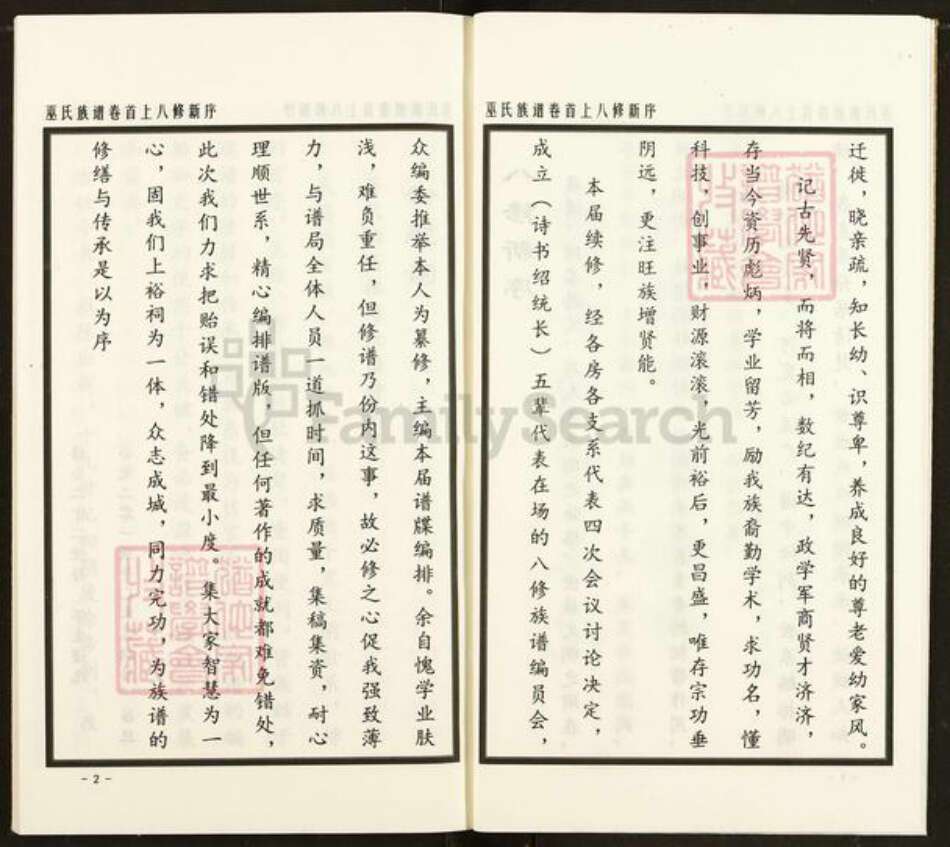 巫氏族谱卷首上八修新序
迁徙，晓亲疏，知长幼、识尊卑，养成良好的尊老爱幼家风。
记古先贤，而将而相，数纪有达，政学军商贤才济济，
存当今资历彪炳，学业留芳，励我族裔勤学术，求功名，懂
科技，创事业，财源滚滚，光前裕后，更昌盛，唯存宗功垂
阴远，更注旺族增贤能。
本届续修，经各房各支系代表四次会议讨论决定，
成立（诗书绍统长）五辈代表在场的八修族谱编员会，
巫氏族谱卷首上八修新序
众编委推举本人为纂修，主编本届谱牒编排。余自愧学业肤
浅，难负重任，但修谱乃份内这事，故必修之心促我强致薄
力，与谱局全体人员一道抓时间，求质量，集稿集资，耐心
理顺世系，精心编排谱版，但任何著作的成就都难免错处，
此次我们力求把贻误和错处降到最小度。集大家智慧为一
心，固我们上裕祠为一体，众志成城，同力完功，为族谱的
修缮与传承是以为序
-2-
FamilySearch